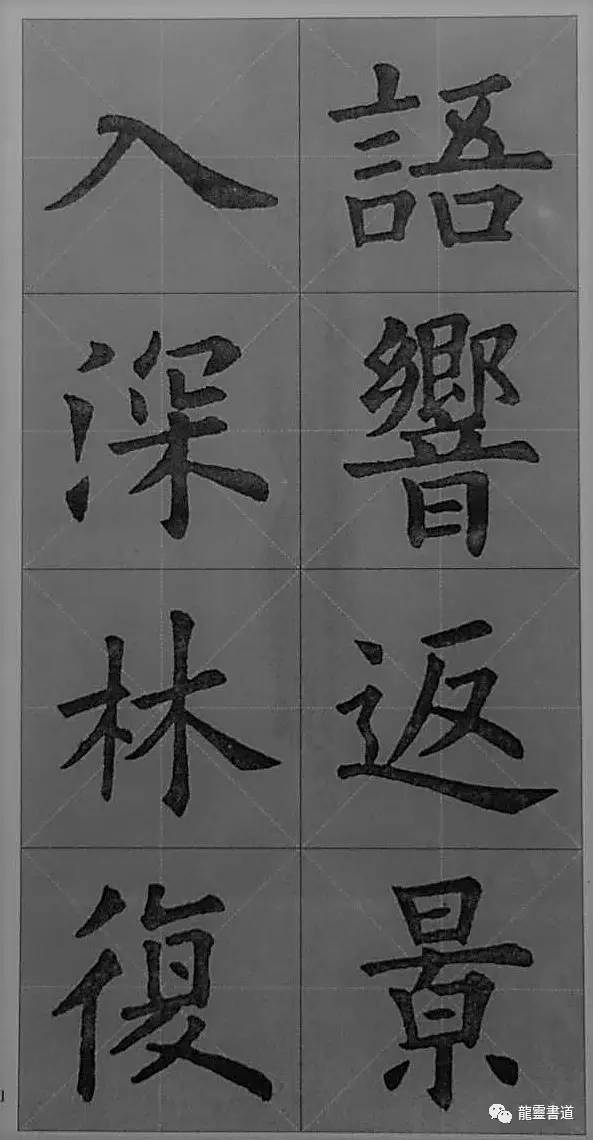 語響返景
入深林復
龍靈書道